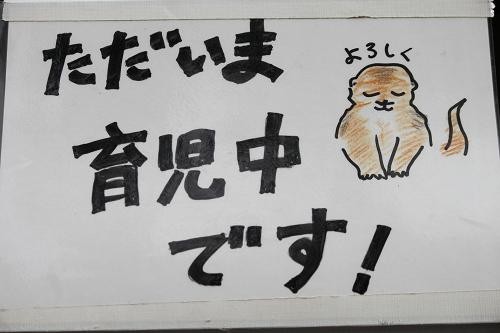 ただいま
よろしく
育児中
です!